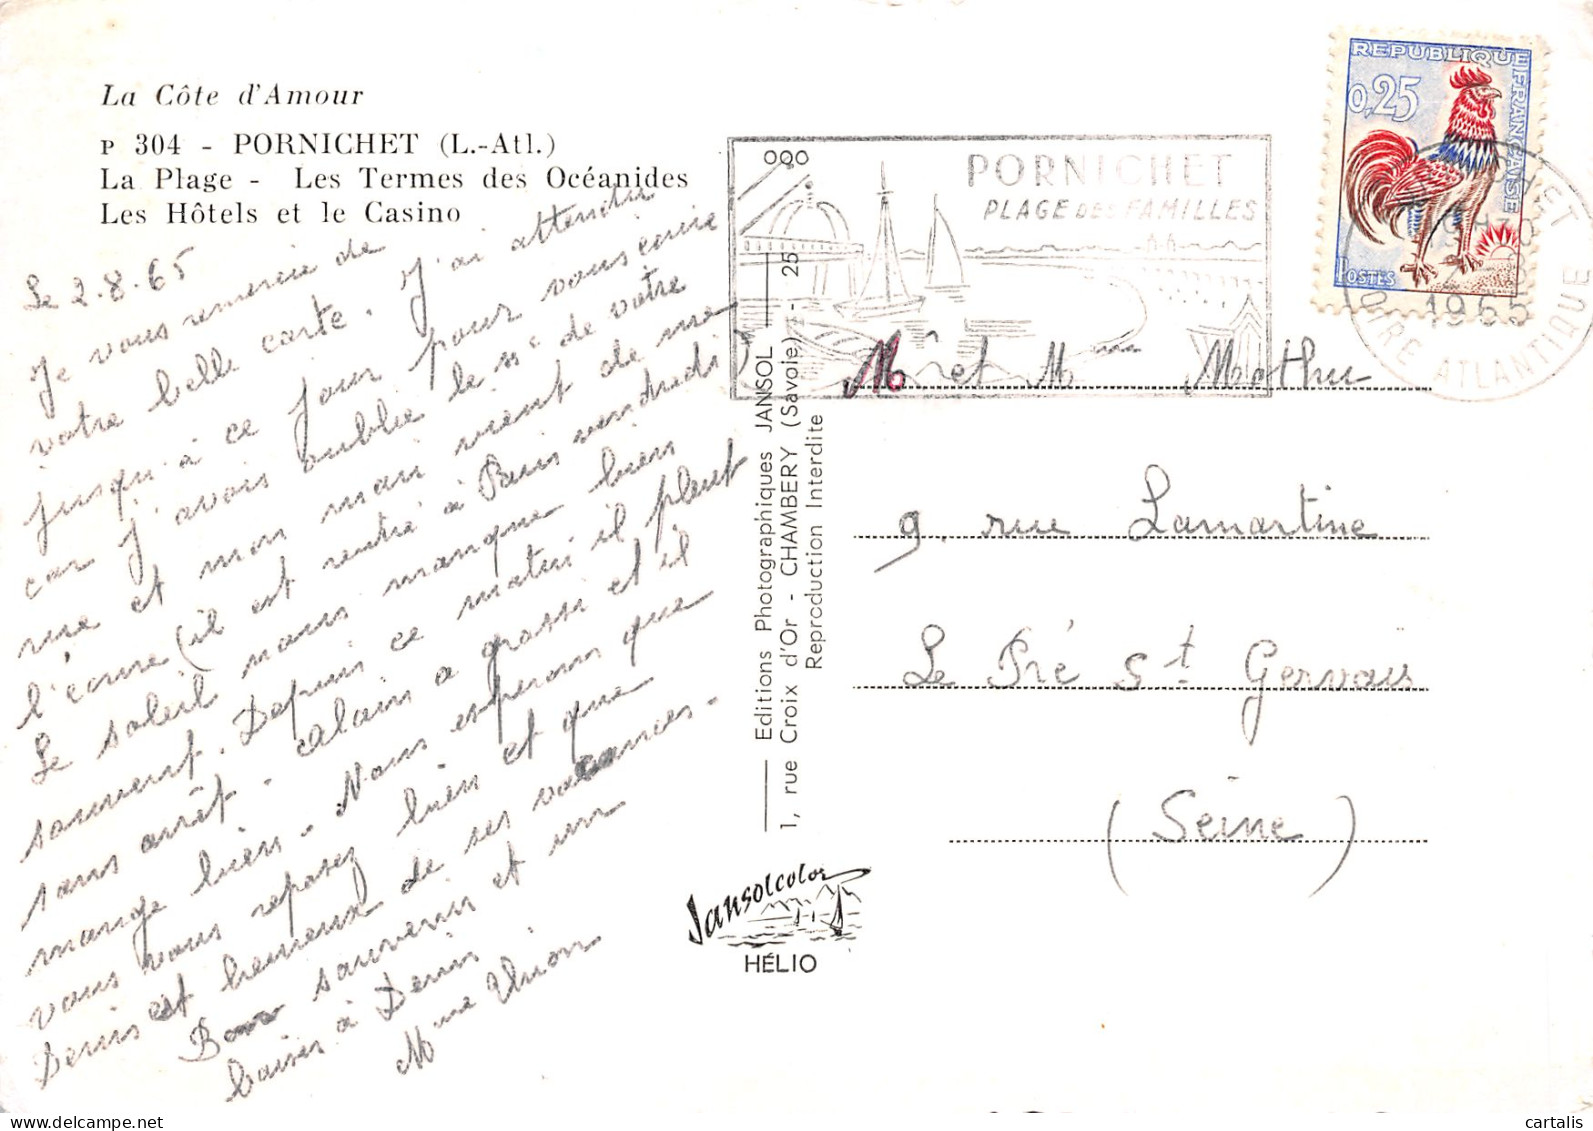 La Côte d'Amour
P 304 - PORNICHET (L.-Atl.)
La Plage - Les Termes des Océanides
Les Hôtels et le Casino
Le 2.8.65
Je vous remercie de
votre belle carte. J'ai attendu
jusqu'à ce jour pour vous écrire
car j'avais oublié le n° de votre
rue et mon mari vient de me
l'écrire (il est rentré à Paris vendredi)
Le soleil nous manque bien
souvent. Depuis ce matin il pleut
sans arrêt. Alain a grossi et il
mange bien. Nous espérons que
vous vous reposez bien et que
Denis est heureux de ses vacances.
Bon souvenir et un
baiser à Denis
Mme
Editions Photographiques JANSOL
1, rue Croix d'Or - CHAMBERY (Savoie) - 25
Reproduction Interdite
Jansolcolor
HÉLIO
PORNICHET
PLAGE DES FAMILLES
REPUBLIQUE FRANÇAISE
0,25
POSTES
1965
LOIRE ATLANTIQUE
Mr et Mme Mathu
9, rue Lamartine
Le Pré St Gervais
(Seine)
cartalis